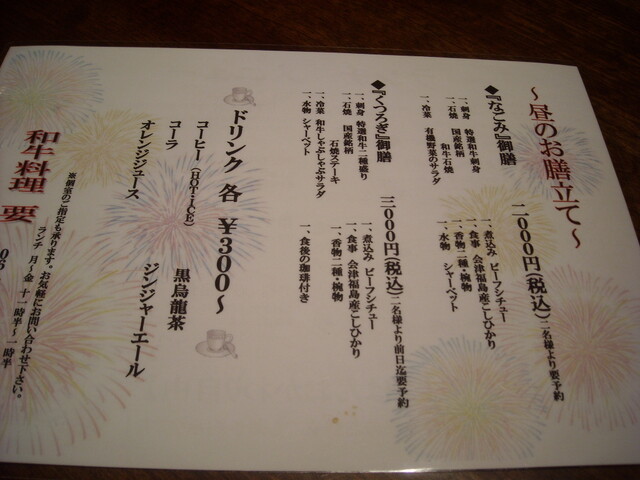 ～昼のお膳立て～
◆『なごみ』御膳
二〇〇〇円(税込)二名様より要予約
一、刺身 特選和牛刺身
一、石焼 国産銘柄 和牛石焼
一、冷菜 有機野菜のサラダ
一、煮込み ビーフシチュー
一、食事 会津福島産こしひかり
一、香物二種・椀物
一、水物 シャーベット
◆『くつろぎ』御膳
三〇〇〇円(税込)二名様より前日迄要予約
一、刺身 特選和牛二種盛り
一、石焼 国産銘柄 石焼ステーキ
一、冷菜 和牛しゃぶしゃぶサラダ
一、水物 シャーベット
一、煮込み ビーフシチュー
一、食事 会津福島産こしひかり
一、香物二種・椀物
一、食後の珈琲付き
ドリンク 各 ￥300～
コーヒー(HOT・ICE)
黒烏龍茶
コーラ
ジンジャーエール
オレンジジュース
※個室のご指定も承ります。お気軽にお問い合わせ下さい。
ランチ 月～金 十一時半～一時半
和牛料理 要